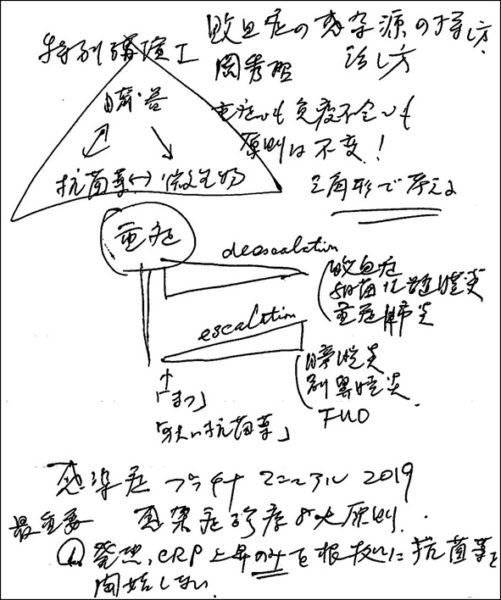 特別講演Ⅰ 敗血症の感染源の探し方、
治し方
岡秀昭
臓器
重症でも免疫不全でも
原則は不変！
抗菌薬↔微生物
三角形で考える
重症
deescalation
敗血症
細菌性髄膜炎
重症肺炎
escalation
膀胱炎
副鼻腔炎
FUO
↑
「まつ」
「狭い抗菌薬」
感染症プラチナマニュアル 2019
最重要 感染症診療の大原則.
① 発熱、CRP上昇のみを根拠に抗菌薬を
開始しない.